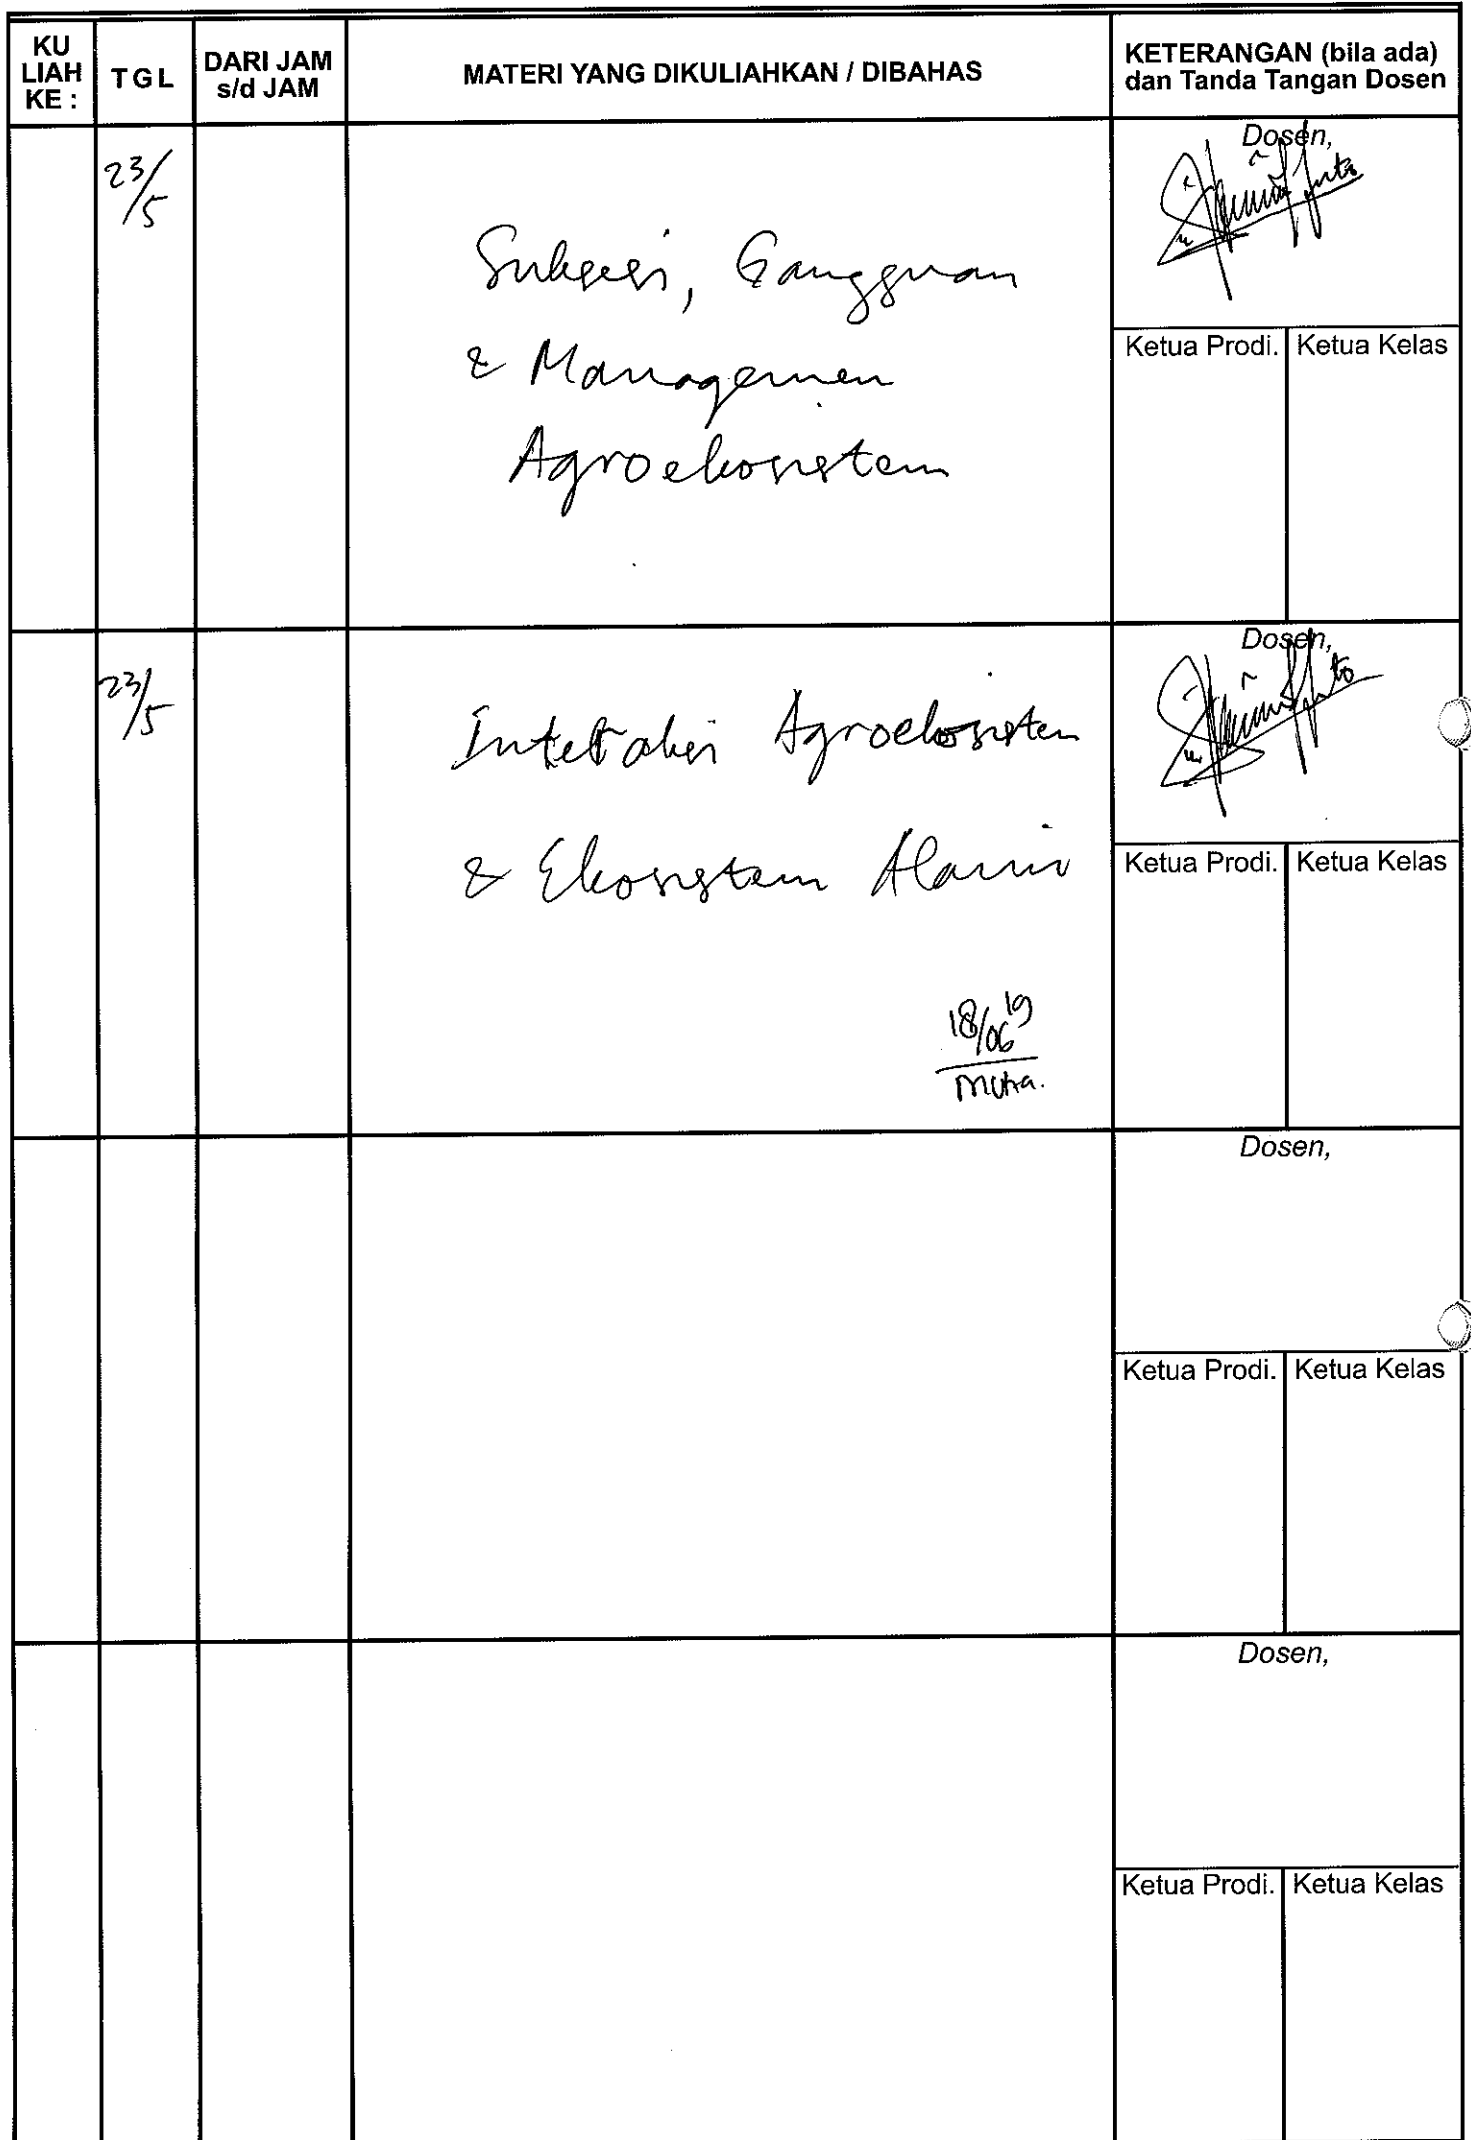 KU LIAH KE : TGL DARI JAM s/d JAM MATERI YANG DIKULIAHKAN / DIBAHAS KETERANGAN (bila ada) dan Tanda Tangan Dosen
23/5
Dosen,
Suksesi, Gangguan
& Managemen
Agroekosistem
Ketua Prodi. Ketua Kelas
23/5
Dosen,
Interaksi Agroekosistem
& Ekosistem Alami
Ketua Prodi. Ketua Kelas
18/06 19
Dosen,
Ketua Prodi. Ketua Kelas
Dosen,
Ketua Prodi. Ketua Kelas